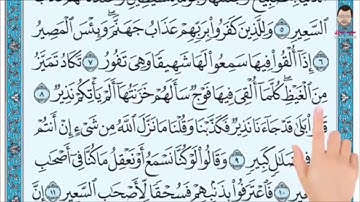 ٱلسَّعِيرِ ٥ وَلِلَّذِينَ كَفَرُوا۟ بِرَبِّهِمْ عَذَابُ جَهَنَّمَ ۖ وَبِئْسَ ٱلْمَصِيرُ
٦ إِذَآ أُلْقُوا۟ فِيهَا سَمِعُوا۟ لَهَا شَهِيقًا وَهِىَ تَفُورُ ٧ تَكَادُ تَمَيَّزُ
مِنَ ٱلْغَيْظِ ۖ كُلَّمَآ أُلْقِىَ فِيهَا فَوْجٌ سَأَلَهُمْ خَزَنَتُهَآ أَلَمْ يَأْتِكُمْ نَذِيرٌ ٨
قَالُوا۟ بَلَىٰ قَدْ جَآءَنَا نَذِيرٌ فَكَذَّبْنَا وَقُلْنَا مَا نَزَّلَ ٱللَّهُ مِن شَىْءٍ إِنْ أَنتُمْ
ضَلَٰلٍ كَبِيرٍ ٩ وَقَالُوا۟ لَوْ كُنَّا نَسْمَعُ أَوْ نَعْقِلُ مَا كُنَّا فِىٓ أَصْحَٰبِ
١٠ فَٱعْتَرَفُوا۟ بِذَنۢبِهِمْ فَسُحْقًا لِّأَصْحَٰبِ ٱلسَّعِيرِ ١١ إِنَّ